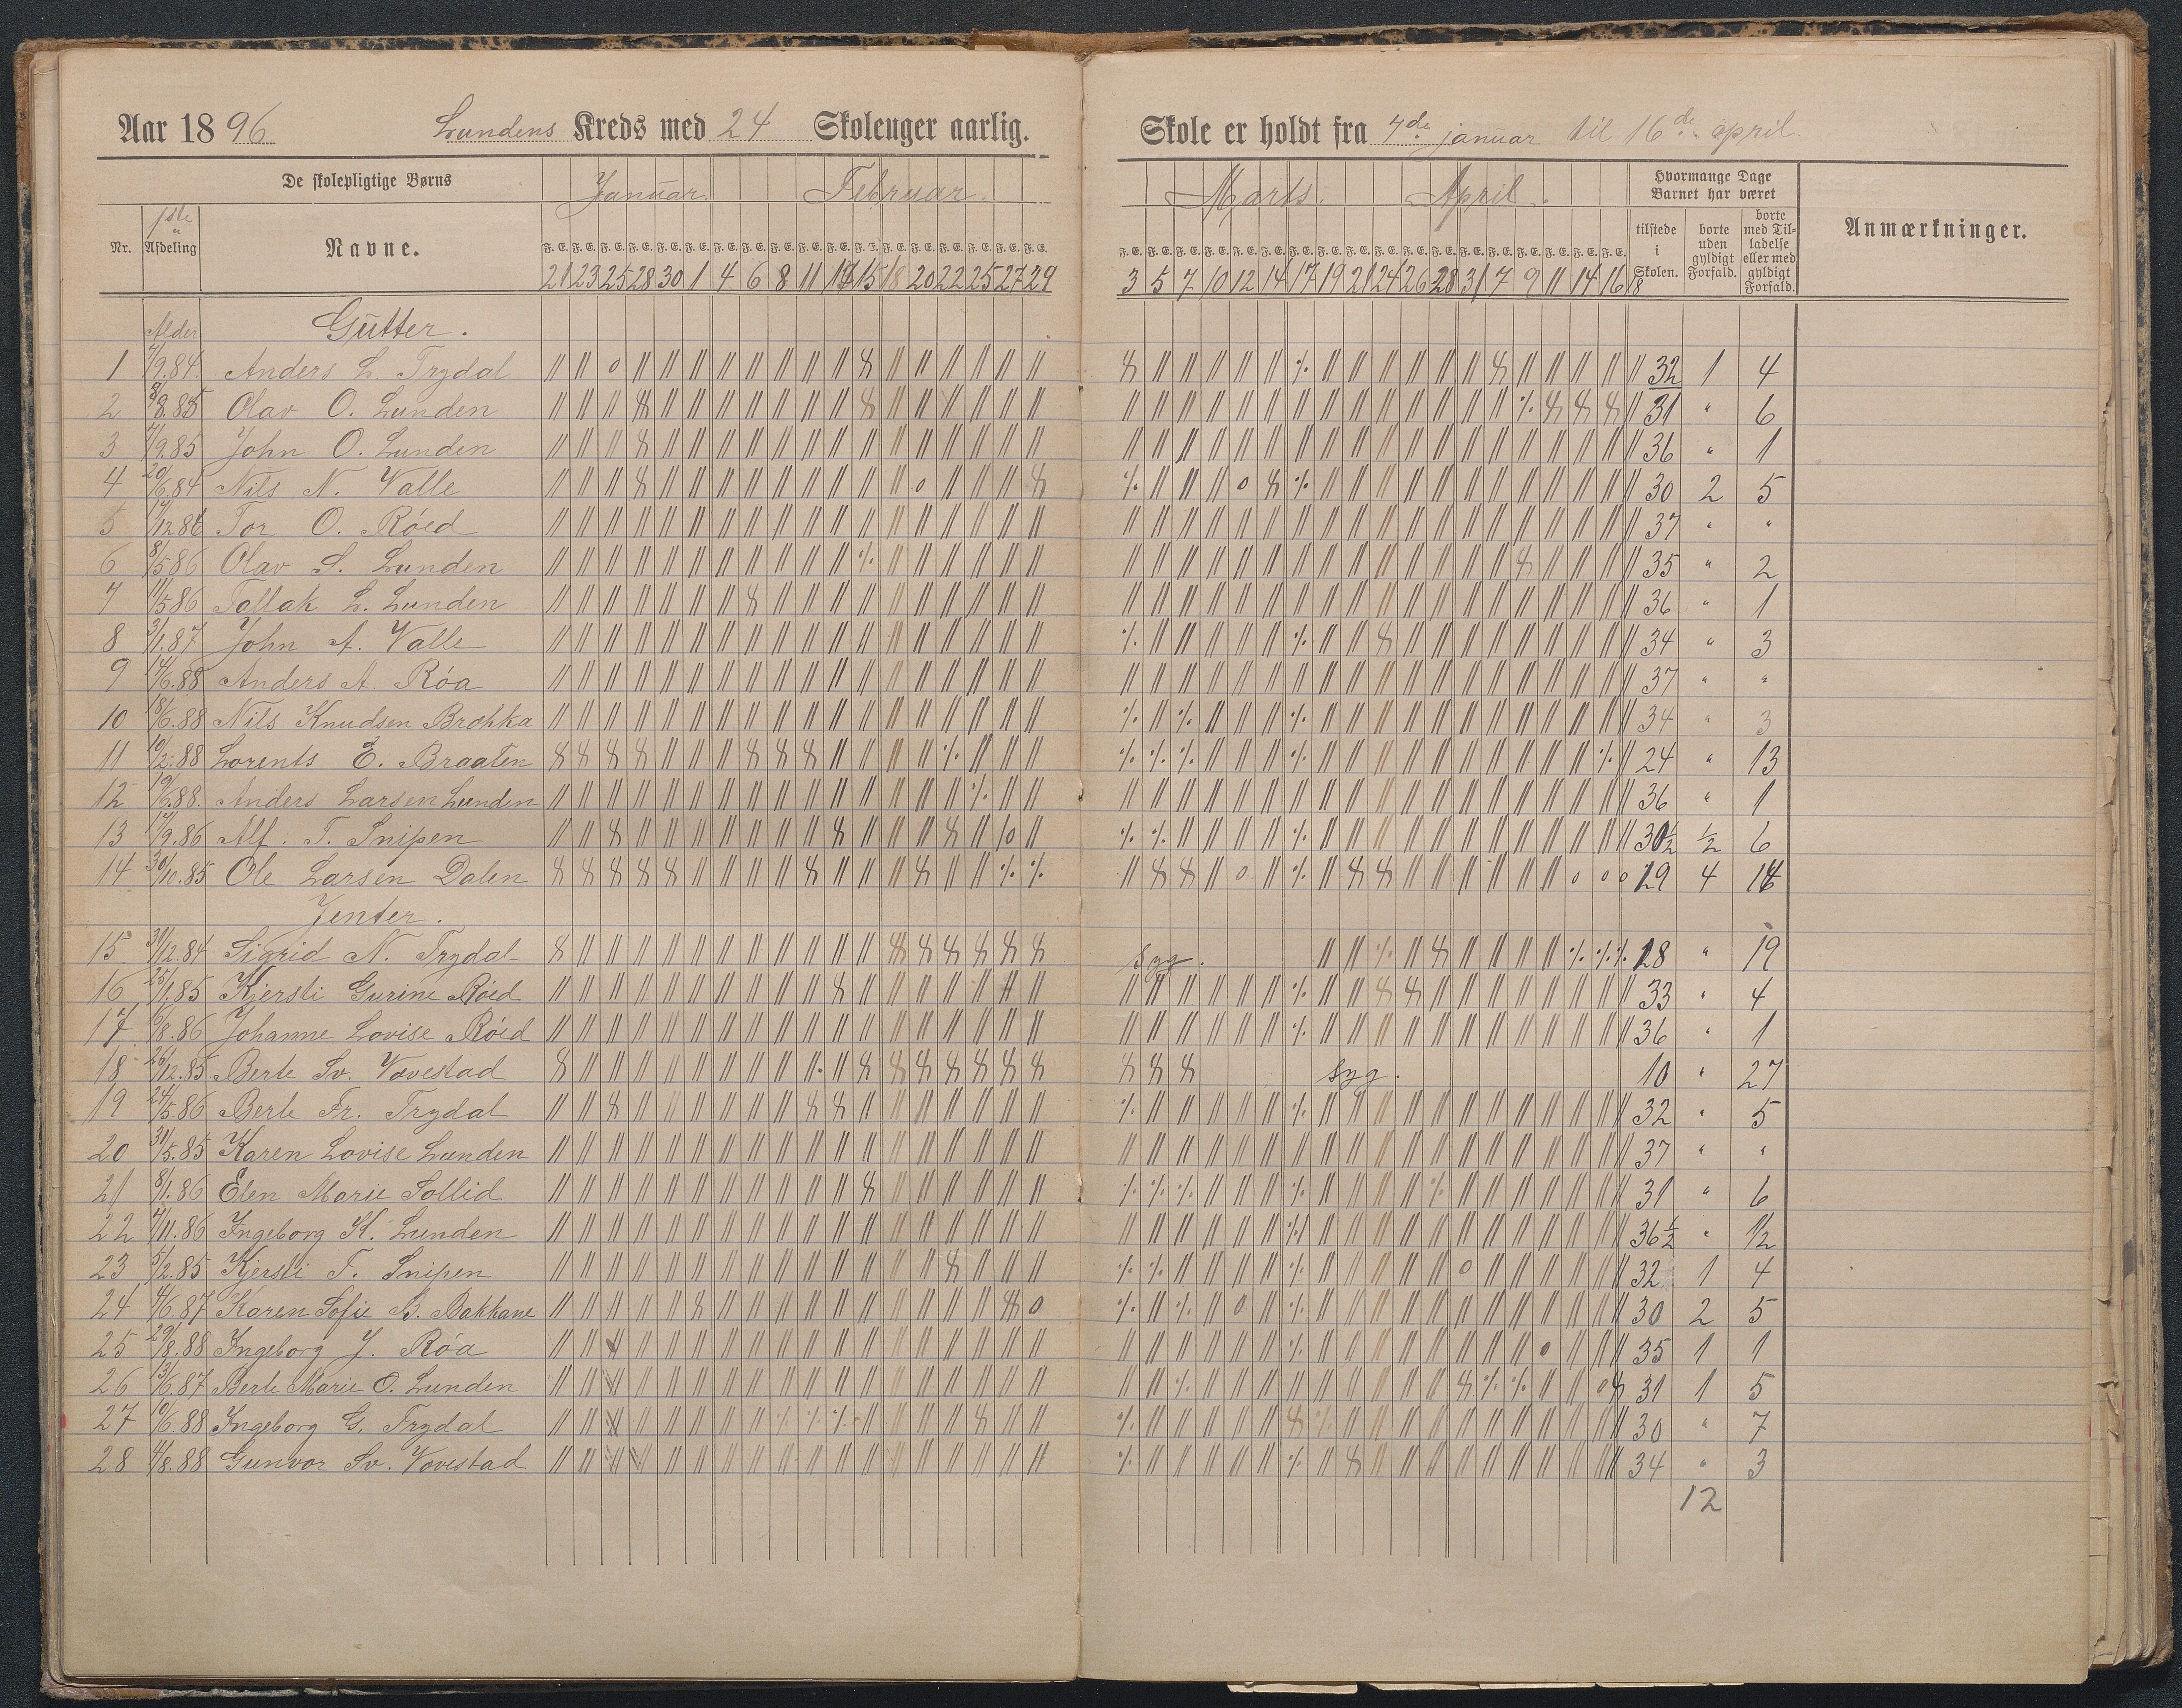 Aar 1896 Lundens Kreds med 24 Skoleuger aarlig.
De skolepligtige Børns
Januar. Februar.
Nr. 1ste Afdeling Navne.
F. E. F. E. F. E. F. E. F. E. F. E. F. E. F. E. F. E. F. E. F. E. F. E. F. E. F. E. F. E. F. E. F. E. F. E.
21 23 25 28 30 1 4 6 8 11 13 15 18 20 22 25 27 29
Alder Gutter.
1 7/9.84. Anders L. Trydal
2 8/8.85 Olav O. Lunden
3 7/9.85 John O. Lunden
4 20/6.84 Nils N. Valle
5 17/12.86 Tor O. Röed
6 8/5.86 Olav S. Lunden
7 11/5.86 Tallak L. Lunden
8 3/1.87 John A. Valle
9 14/6.88 Anders A. Röa
10 18/6.88 Nils Knudsen Brokka
11 10/2.88 Lorents E. Braaten
12 19/6.88. Anders Larsen Lunden
13 17/9.86 Alf. T. Snipen
14 30/10.85 Ole Larsen Dalen
Jenter.
15 31/12.84 Sigrid N. Trydal
16 25/1.85 Kjersti Gurine Röed
17 6/8.86 Johanne Lovise Röed
18 26/12.85 Berte Sv. Vovestad
19 24/5.86 Berte Fr. Trydal
20 31/5.85 Karen Lovise Lunden
21 8/1.86 Elen Marie Sollid
22 4/11.86 Ingeborg K. Lunden
23 5/2.85 Kjersti T. Snipen
24 4/6.87 Karen Sofie B. Bakkane
25 29/8.88 Ingeborg J. Röa
26 13/6.87 Berte Marie O. Lunden
27 10/6.88 Ingeborg G. Trydal
28 4/8.88 Gunvor Sv. Vovestad
Skole er holdt fra 4de januar til 16de april.
Marts. April.
Hvormange Dage Barnet har været
tilstede i Skolen.
borte uden gyldigt Forfald.
borte med Tilladelse eller med gyldigt Forfald.
Anmærkninger.
F. E. F. E. F. E. F. E. F. E. F. E. F. E. F. E. F. E. F. E. F. E. F. E. F. E. F. E. F. E. F. E. F. E. F. E.
3 5 7 10 12 14 17 19 21 24 26 28 31 7 9 11 14 16 18
32 1 4
31 " 6
36 " 1
30 2 5
37 " "
35 " 2
36 " 1
34 " 3
37 " "
34 " 3
24 " 13
36 " 1
30½ ½ 6
19 4 14
syg. 18 " 19
33 " 4
36 " 1
syg. 10 " 27
32 " 5
37 " "
31 " 6
36½ " ½
32 1 4
30 2 5
35 1 1
31 1 5
30 " 7
34 " 3
12